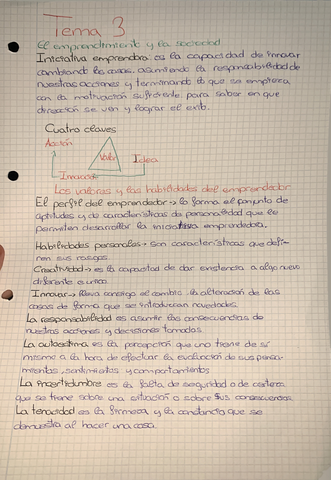 Tema 3
El emprendimiento y la sociedad
Iniciativa emprendora: es la capacidad de innovar
cambiando las cosas, asumiendo la responsabilidad de
nuestras acciones y terminando lo que se empieza
con la motivación suficiente para saber en que
dirección se ven y lograr el exito.
Cuatro claves
Acción
Valor
Idea
Innovación
Los valores y las habilidades del emprendedor
El perfil del emprendedor → lo forma el conjunto de
aptitudes y de características de personalidad que le
permiten desarrollar la iniciativa emprendedora.
Habilidades personales → son características que defi-
nen sus rasgos.
Creatividad → es la capacidad de dar existencia a algo nuevo
diferente o único.
Innovar → lleva consigo el cambio, la alteración de las
cosas de forma que se introduzcan novedades.
La responsabilidad es asumir las consecuencias de
nuestras acciones y decisiones tomadas.
La autoestima es la percepción que uno tiene de sí
mismo a la hora de efectuar la evaluación de sus pensa-
mientos, sentimientos y comportamientos
La incertidumbre es la falta de seguridad o de certeza
que se tiene sobre una situación o sobre sus consecuencias
La tenacidad es la firmeza y la constancia que se
demuestra al hacer una cosa.